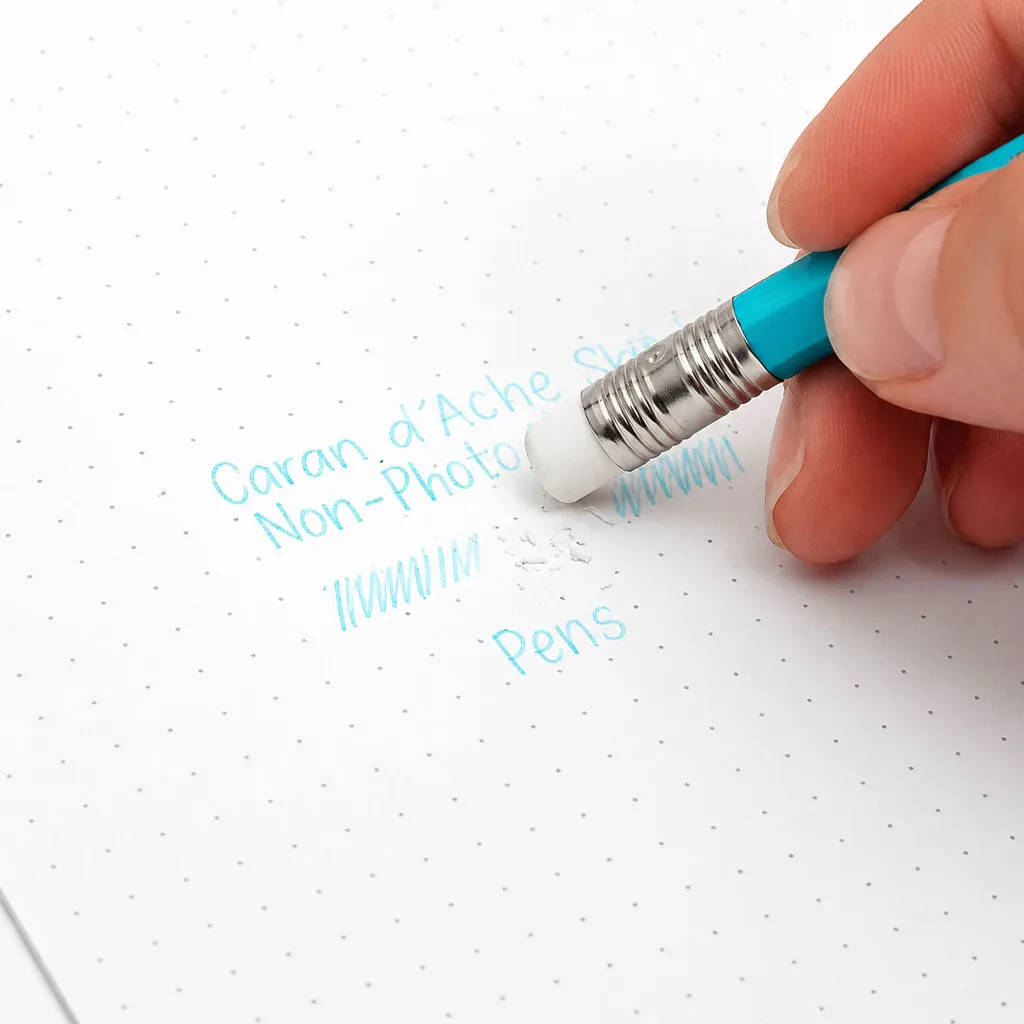 Caran d'Ache
Non-Photo
Pens